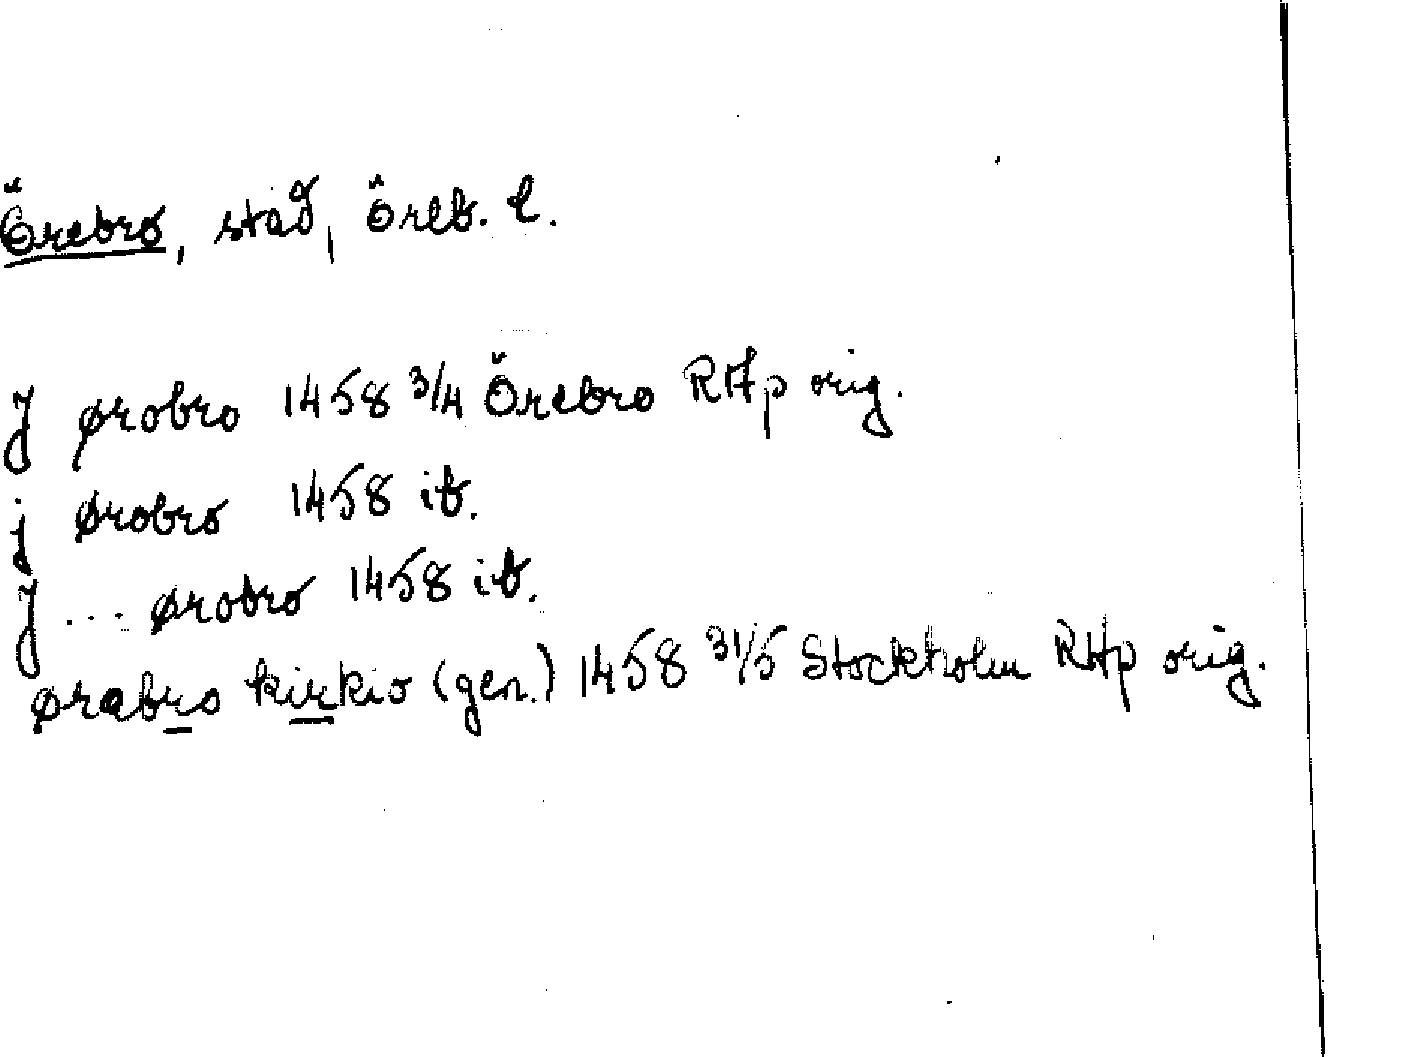 Örebro, stad, Öreb. l.
J ørobro 1458 3/4 Örebro RAp orig.
j ørobro 1458 ib.
J ... ørobro 1458 ib.
ørabro kirkio (gen.) 1458 31/5 Stockholm RAp orig.